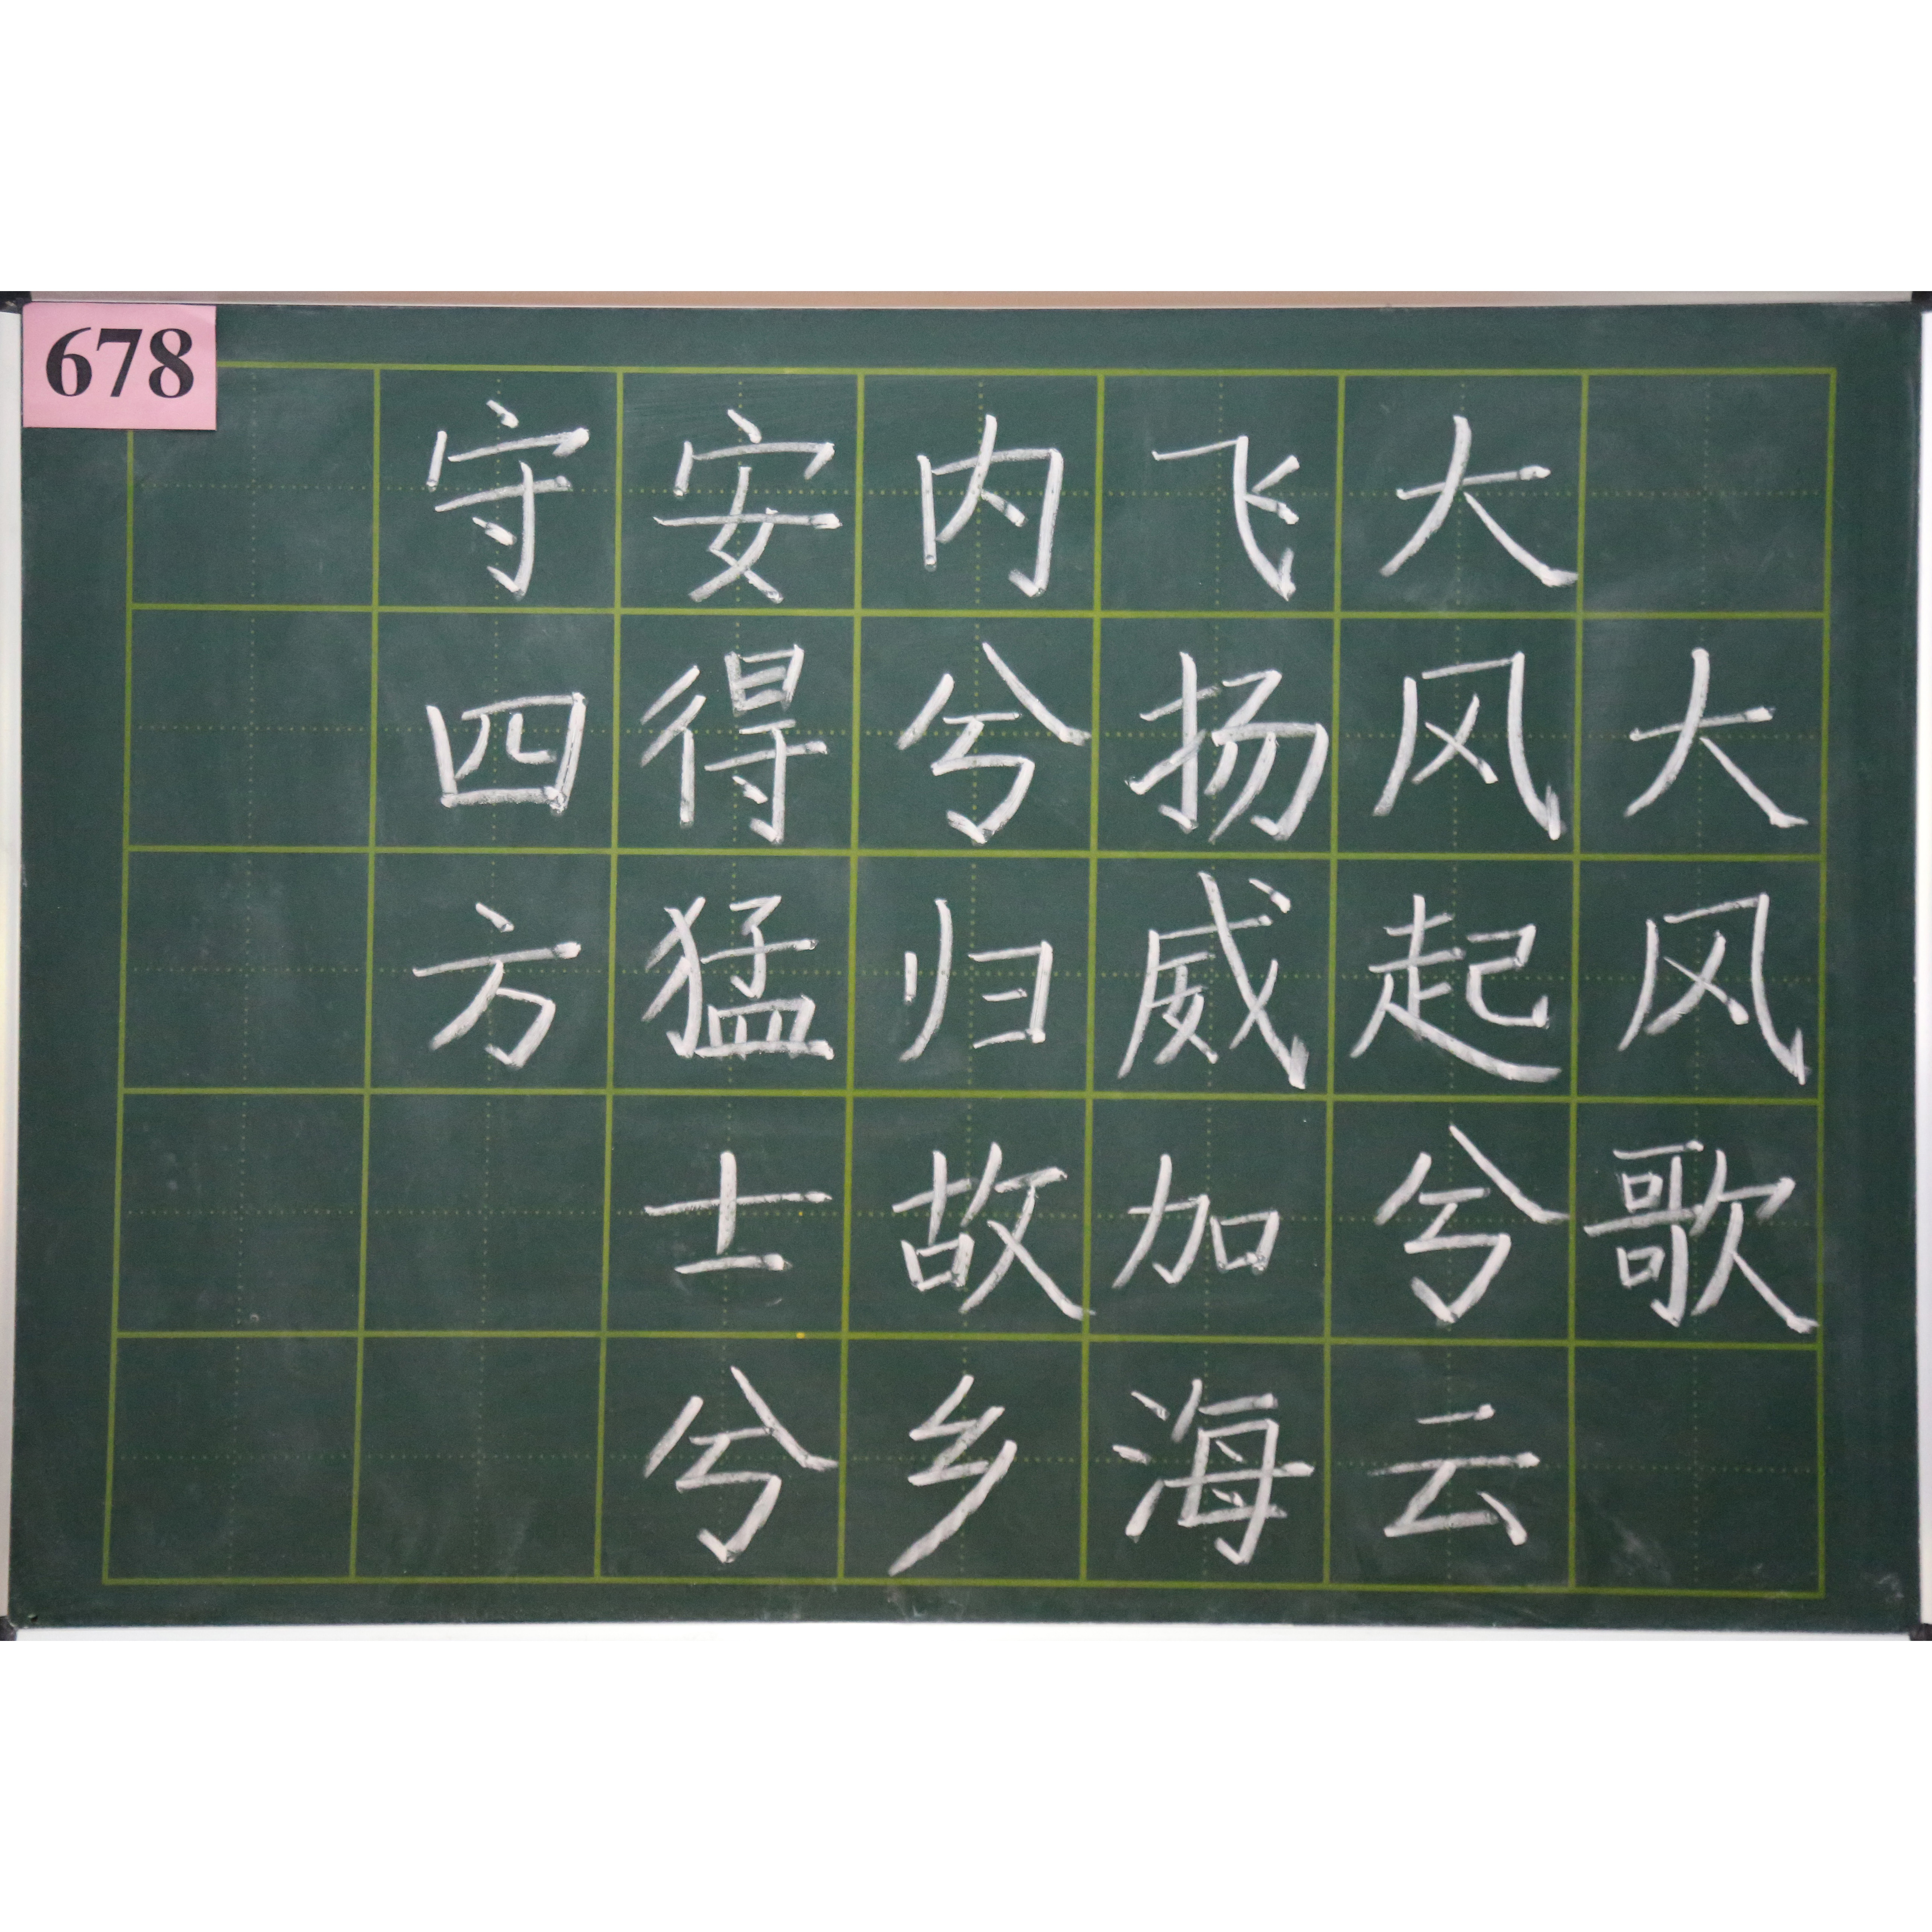 678
大风歌
大风起兮云
飞扬威加海
内兮归故乡
安得猛士兮
守四方